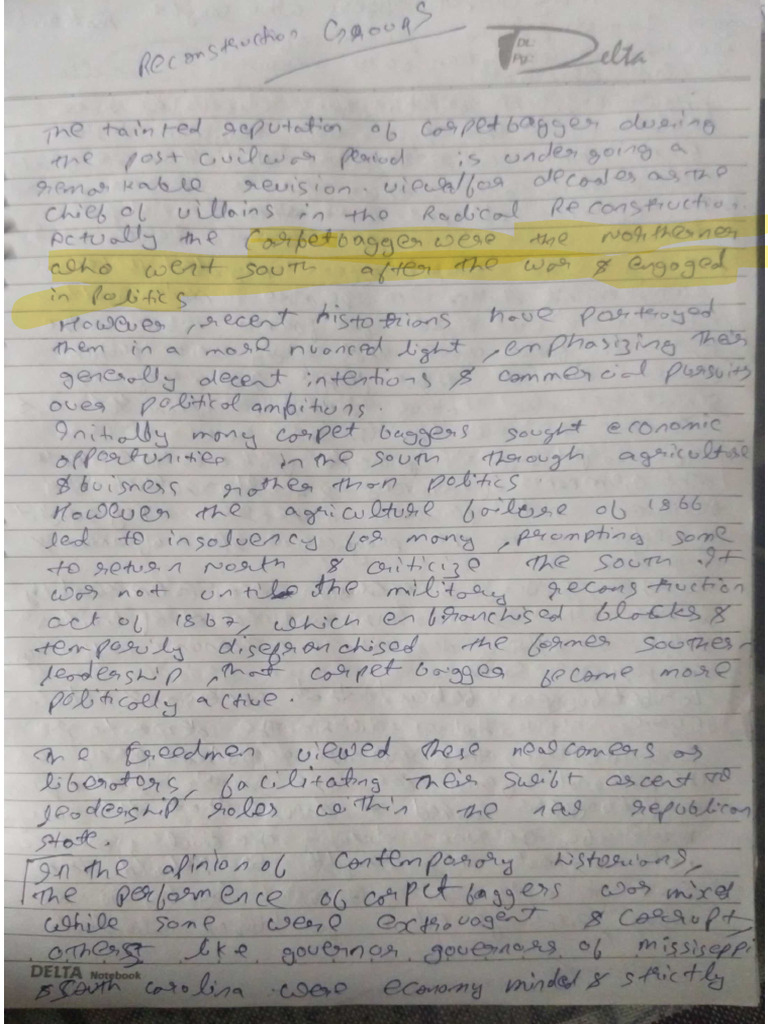 Reconstruction Groups
DL
PVC
Delta
The tainted reputation of carpetbagger during
the post civil war period is undergoing a
remarkable revision. viewed for decades as the
chief of villains in the Radical Reconstruction.
Actually the Carpetbagger were the Northerner
who went south after the war & engaged
in politics
However, recent historians have portrayed
them in a more nuanced light, emphasizing their
generally decent intentions & commercial pursuits
over political ambitions.
Initially many carpet baggers sought economic
opportunities in the south through agriculture
& buisness rather than politics
However the agriculture failure of 1866
led to insolvency for many, prompting some
to return North & criticize the south. It
was not until the military reconstruction
act of 1867, which enfranchised blacks &
temporily disefranchised the former southern
leadership, that carpet bagger become more
politically active.
The Freedmen viewed these newcomers as
liberators, facilitating their swift ascent to
leadership roles within the new republican
state.
In the opinion of contemporary historians,
the performence of carpet baggers was mixed
while some were extravagent & corrupt,
others like governor governors of missiseppi
& South carolina were economy minded & strictly
DELTA Notebook